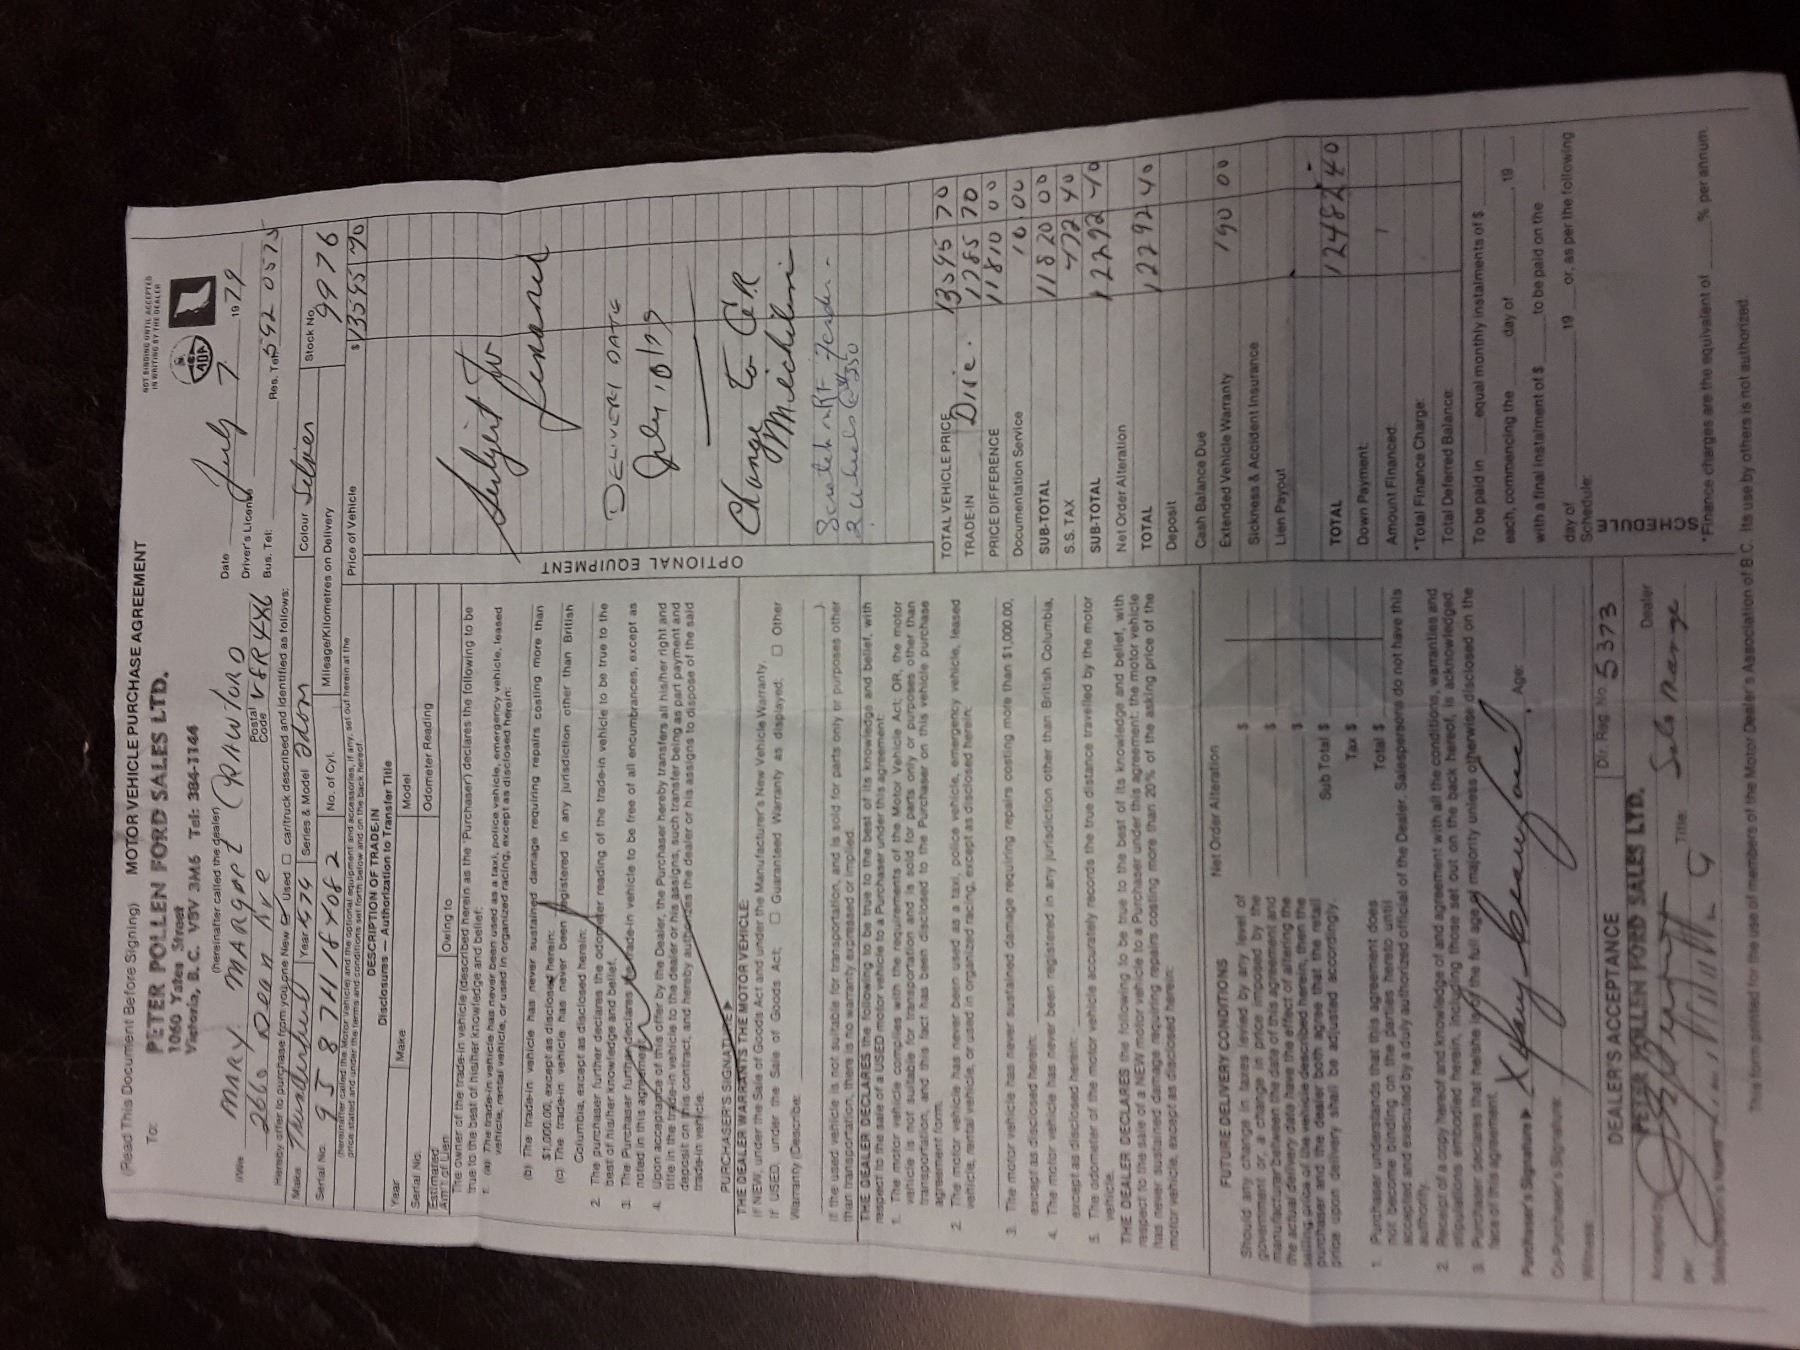 (Read This Document Before Signing) MOTOR VEHICLE PURCHASE AGREEMENT
NOT BINDING UNTIL ACCEPTED
IN WRITING BY THE DEALER
To: PETER POLLEN FORD SALES LTD.
1060 Yates Street
Victoria, B. C. V8V 3M6 Tel: 384-1144
ADA
(hereinafter called the dealer)
Date July 7 1979
I/We MARY MARGRET CRAWFORD
Driver's Licence
2660 Dean Ave Postal Code V8R4X6 Bus. Tel: Res. Tel: 592 0575
Hereby offer to purchase from you one New Used car/truck described and identified as follows:
Make Thunderbird Year 1979 Series & Model 2dom Colour Silver Stock No. 9976
Serial No. 9S87H18 No. of Cyl. Mileage/Kilometres on Delivery
(hereinafter called the Motor Vehicle) and the optional equipment and accessories, if any, set out herein at the
price stated and under the terms and conditions set forth below and on the back hereof.
Price of Vehicle $ 13595 70
DESCRIPTION OF TRADE-IN
Disclosures — Authorization to Transfer Title
Year Make Model
Serial No. Odometer Reading
Estimated Am't of Lien Owing to
The owner of the trade-in vehicle (described herein as the 'Purchaser') declares the following to be
true to the best of his/her knowledge and belief:
1. (a) The trade-in vehicle has never been used as a taxi, police vehicle, emergency vehicle, leased
vehicle, rental vehicle, or used in organized racing, except as disclosed herein:
(b) The trade-in vehicle has never sustained damage requiring repairs costing more than
$1,000.00, except as disclosed herein:
(c) The trade-in vehicle has never been registered in any jurisdiction other than British
Columbia, except as disclosed herein:
2. The purchaser further declares the odometer reading of the trade-in vehicle to be true to the
best of his/her knowledge and belief.
3. The Purchaser further declares the trade-in vehicle to be free of all encumbrances, except as
noted in this agreement.
4. Upon acceptance of this offer by the Dealer, the Purchaser hereby transfers all his/her right and
title in the trade-in vehicle to the dealer or his assigns, such transfer being as part payment and
deposit on this contract, and hereby authorizes the dealer or his assigns to dispose of the said
trade-in vehicle.
PURCHASER'S SIGNATURE
THE DEALER WARRANTS THE MOTOR VEHICLE:
If NEW, under the Sale of Goods Act and under the Manufacturer's New Vehicle Warranty.
If USED, under the Sale of Goods Act, Guaranteed Warranty as displayed, Other
Warranty (Describe: )
If the used vehicle is not suitable for transportation, and is sold for parts only or purposes other
than transportation, there is no warranty expressed or implied.
THE DEALER DECLARES the following to be true to the best of its knowledge and belief, with
respect to the sale of a USED motor vehicle to a Purchaser under this agreement:
1. The motor vehicle complies with the requirements of the Motor Vehicle Act; OR, the motor
vehicle is not suitable for transportation and is sold for parts only or purposes other than
transportation, and this fact has been disclosed to the Purchaser on this vehicle purchase
agreement form.
2. The motor vehicle has never been used as a taxi, police vehicle, emergency vehicle, leased
vehicle, rental vehicle, or used in organized racing, except as disclosed herein:
3. The motor vehicle has never sustained damage requiring repairs costing more than $1,000.00,
except as disclosed herein:
4. The motor vehicle has never been registered in any jurisdiction other than British Columbia,
except as disclosed herein:
5. The odometer of the motor vehicle accurately records the true distance travelled by the motor
vehicle.
THE DEALER DECLARES the following to be true to the best of its knowledge and belief, with
respect to the sale of a NEW motor vehicle to a Purchaser under this agreement: the motor vehicle
has never sustained damage requiring repairs costing more than 20% of the asking price of the
motor vehicle, except as disclosed herein:
OPTIONAL EQUIPMENT
Subject to
finance
DELIVERY DATE
July 10/79
Change to
Michelin
Scratch on RF Fender -
TOTAL VEHICLE PRICE 13595 70
TRADE-IN Disc. 1785 70
PRICE DIFFERENCE 11810 00
Documentation Service 10.00
SUB-TOTAL 11820 00
S.S. TAX 472 40
SUB-TOTAL 12292 40
Net Order Alteration
TOTAL 12292 40
Deposit
Cash Balance Due
Extended Vehicle Warranty 190 00
Sickness & Accident Insurance
Lien Payout
TOTAL 12482 40
Down Payment:
Amount Financed:
*Total Finance Charge:
Total Deferred Balance:
SCHEDULE
To be paid in equal monthly instalments of $
each, commencing the day of , 19
with a final instalment of $ to be paid on the
day of 19 or, as per the following
Schedule:
*Finance charges are the equivalent of % per annum.
FUTURE DELIVERY CONDITIONS
Should any change in taxes levied by any level of
government or, a change in price imposed by the
manufacturer between the date of this agreement and
the actual delivery date have the effect of altering the
selling price of the vehicle described herein, then the
purchaser and the dealer both agree that the retail
price upon delivery shall be adjusted accordingly.
Net Order Alteration
$
$
$
Sub Total $
Tax $
Total $
1. Purchaser understands that this agreement does
not become binding on the parties hereto until
accepted and executed by a duly authorized official of the Dealer. Salespersons do not have this
authority.
2. Receipt of a copy hereof and knowledge of and agreement with all the conditions, warranties and
stipulations embodied herein, including those set out on the back hereof, is acknowledged.
3. Purchaser declares that he/she is of the full age of majority unless otherwise disclosed on the
face of this agreement.
Purchaser's Signature X Age:
Co-Purchaser's Signature:
Witness:
DEALER'S ACCEPTANCE Dlr. Reg. No. 5373
Accepted by PETER POLLEN FORD SALES LTD. Dealer
per Title: Sales Manager
Salesperson's Name
This form printed for the use of members of the Motor Dealer's Association of B.C. Its use by others is not authorized.